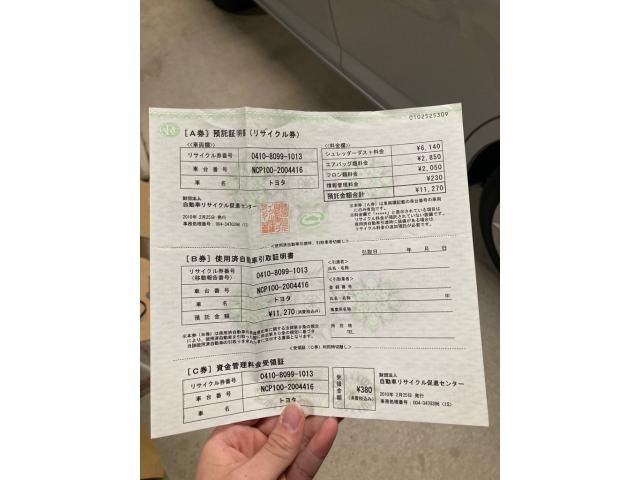 0102525309
[A券] 預託証明書(リサイクル券)
<<車両欄>>
リサイクル券番号 0410-8099-1013
車台番号 NCP100-2004416
車名 トヨタ
財団法人
自動車リサイクル促進センター
2010年 2月25日 発行
<<料金欄>>
シュレッダーダスト料金 ¥6,140
エアバッグ類料金 ¥2,850
フロン類料金 ¥2,050
情報管理料金 ¥230
預託金額合計 ¥11,270
[B券] 使用済自動車引取証明書
リサイクル券番号
(移動報告番号) 0410-8099-1013
車台番号 NCP100-2004416
車名 トヨタ
預託金額 ¥11,270(消費税込み)
引取日: 年 月 日
氏名・名称
登録番号
氏名・名称
事業所名称
所在地
[C券] 資金管理料金受領証
リサイクル券番号 0410-8099-1013
車台番号 NCP100-2004416
車名 トヨタ
受領金額 ¥380
(消費税込み)
財団法人
自動車リサイクル促進センター
2010年 2月25日 発行